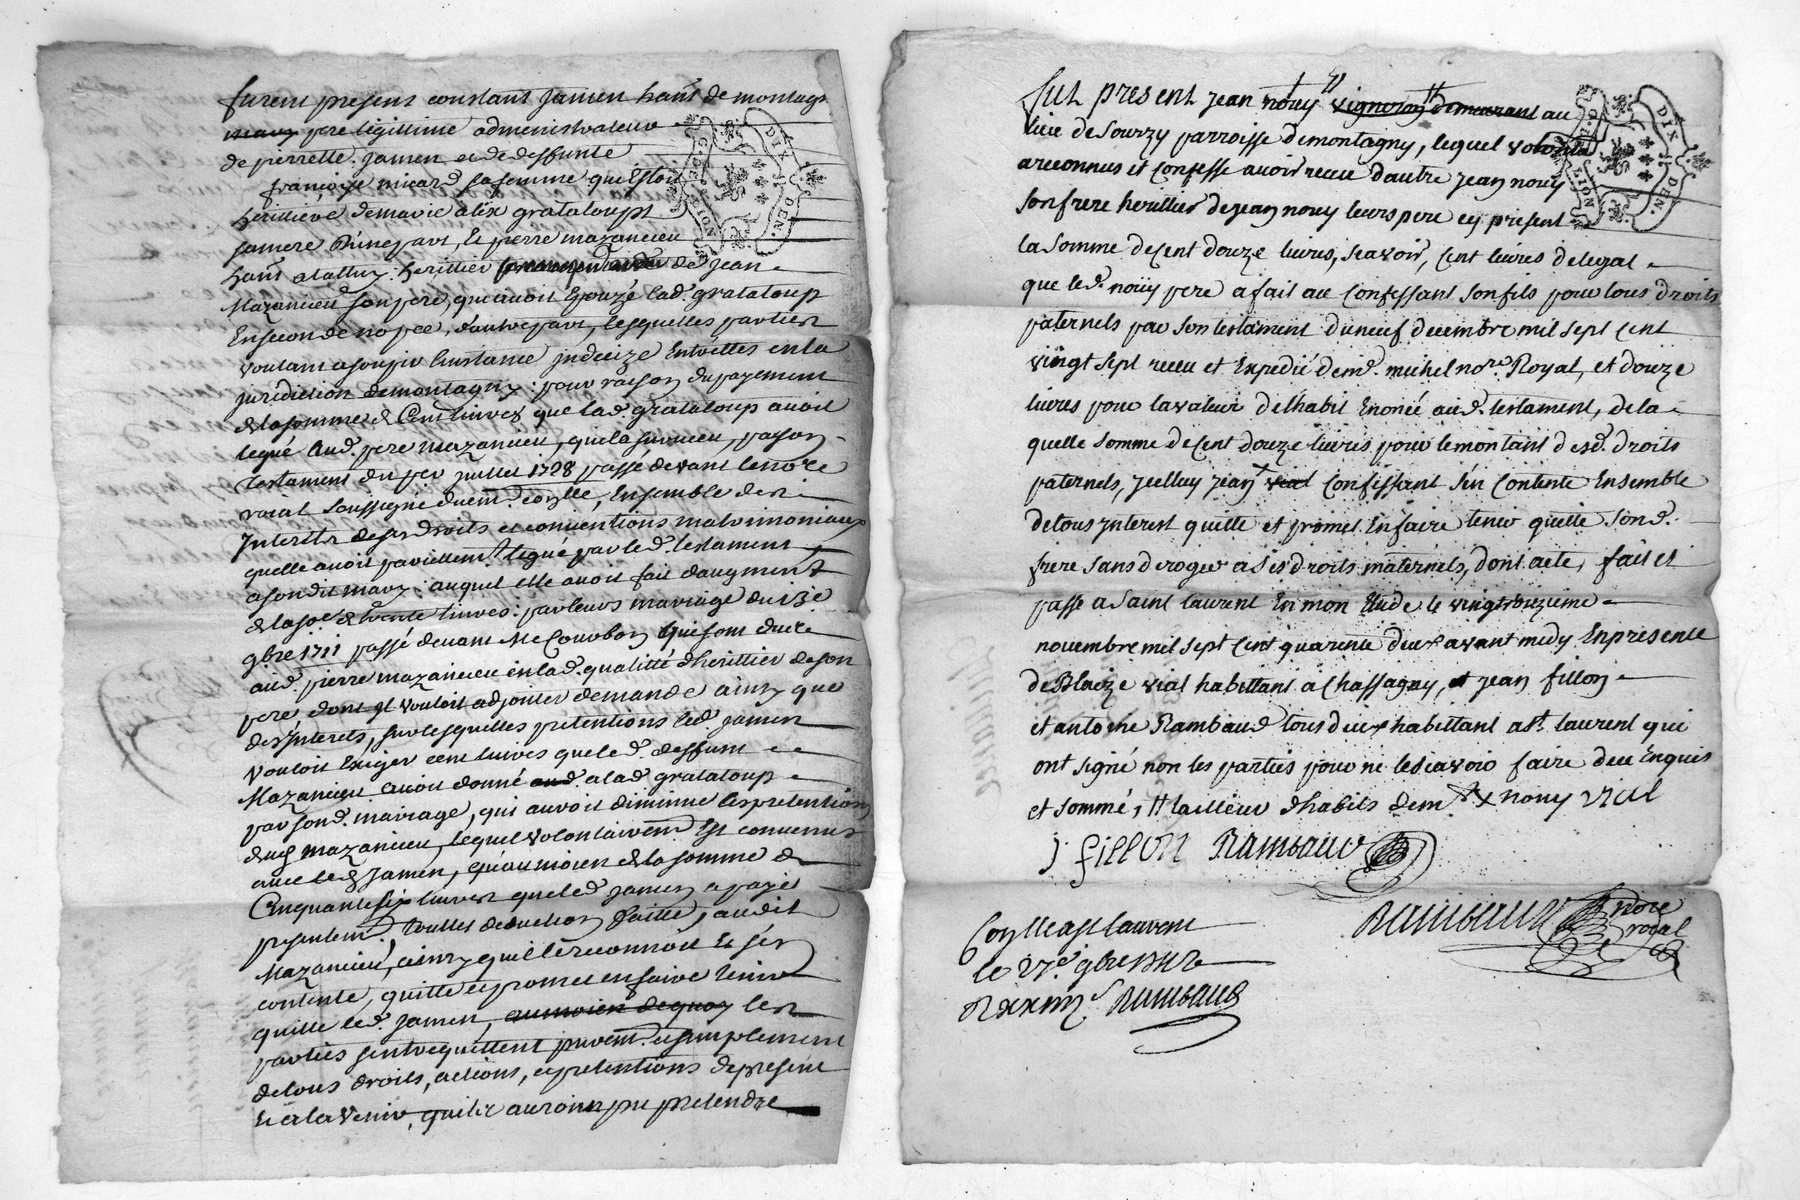 furent present constant Jamen hañt de montagny
pere legittime administrateur
de perrette Jamen et de deffunte
françoise micard sa femme qu'Estoit
heritiere de marie alix grataloupt
sa mere d'une part, Et pierre mazancieu
hañt a tallur heritier de Jean
Mazancieu son pere, qui avoit Epouzé lad. grataloup
En seconde nopce, d'autre part, lesquelles parties
voulant asoupir l'instance indecize Entr'elles en la
juridiction de montagny : pour raison du payement
de la somme de Cent livres que lad. grataloup avoit
legué aud. pere mazancieu, qui la survecu, par son
testament du per juillet 1728 passé devant le nore
roial soussigné duem. coylle, Ensemble des
Interets de ses droits et conventions matrimoniaux
quelle avoit pareillemt. legué par led. testament
a son dit mary : auquel elle avoit fait d'augment
de la so.e de trente livres : par leurs mariage du 13e
9bre 1711 passé devant Me Courbon qui sont duës
aud. pierre mazancieu en lad. qualitté d'herittier de son
pere dont il vouloit adjouter demande ainsy que
des Interets, sur lesquelles pretentions led. Jamen
vouloit Exiger cent livres que led. deffunt
Mazancieu avoit donné a lad. grataloup
par sond. mariage, qui auroit diminué les pretentions
dud. mazancieu, lequel volontairemt Est convenus
avec led. Jamen, qu'au moien de la somme de
Cinquante six livres que led. Jamen a payé
presentemt. toutte deduction faitte, audit
Mazancieu, ainsy qu'il le reconnoit Et s'en
contente, quitte et promet en faire tenir
quitte led. Jamen, au moien de quoy les
parties s'entrequittent purement. et simplement
de tous droits, actions, et pretentions de present
Et a la Venir, qu'ils auroient pu pretendre
fut present Jean noüy vigneron demeurant au
lieu de Sourzy parroisse de montagny, lequel volonte
a reconnus et confesse avoir receu d'autre Jean noüy
son frere heritier de jean nouy leurs pere cy present
la somme de cent douze livres, scavoir, cent livres de legat
que led. noüy pere a fait au confessant son fils pour tous droits
paternels par son testament du neuf decembre mil sept cent
vingt sept receu et Expedié de me. michel nore. Royal, et douze
livres pour la valeur de l'habit Enoncé aud. testament, de la
quelle somme de cent douze livres pour le montant desd. droits
paternels, Jcelluy jean vial confessant s'en contente Ensemble
de tous Interest quitte et promet En faire tenir quitte sond.
frere sans deroger a ses droits maternels, dont acte, fait et
passé a saint laurent En mon Etude le vingt troizieme
novembre mil sept cent quarente deux avant midy En presente
de Blaize vial habittant a Chassagny, et jean fillon
et antoine Rambaud tous deux habittant a st. laurent qui
ont signé non les parties pour ne le scavoir faire de ce Enquis
et sommé, # tailleur d'habits dem.t x nouy Vial
J fillon Rambaud
Rambaud nore
royal
Coylle a st laurent
le 27e 9bre 1742
R xxiiii s Rambaud
C.D. LION DIX DEN.
C.D. LION DIX DEN.